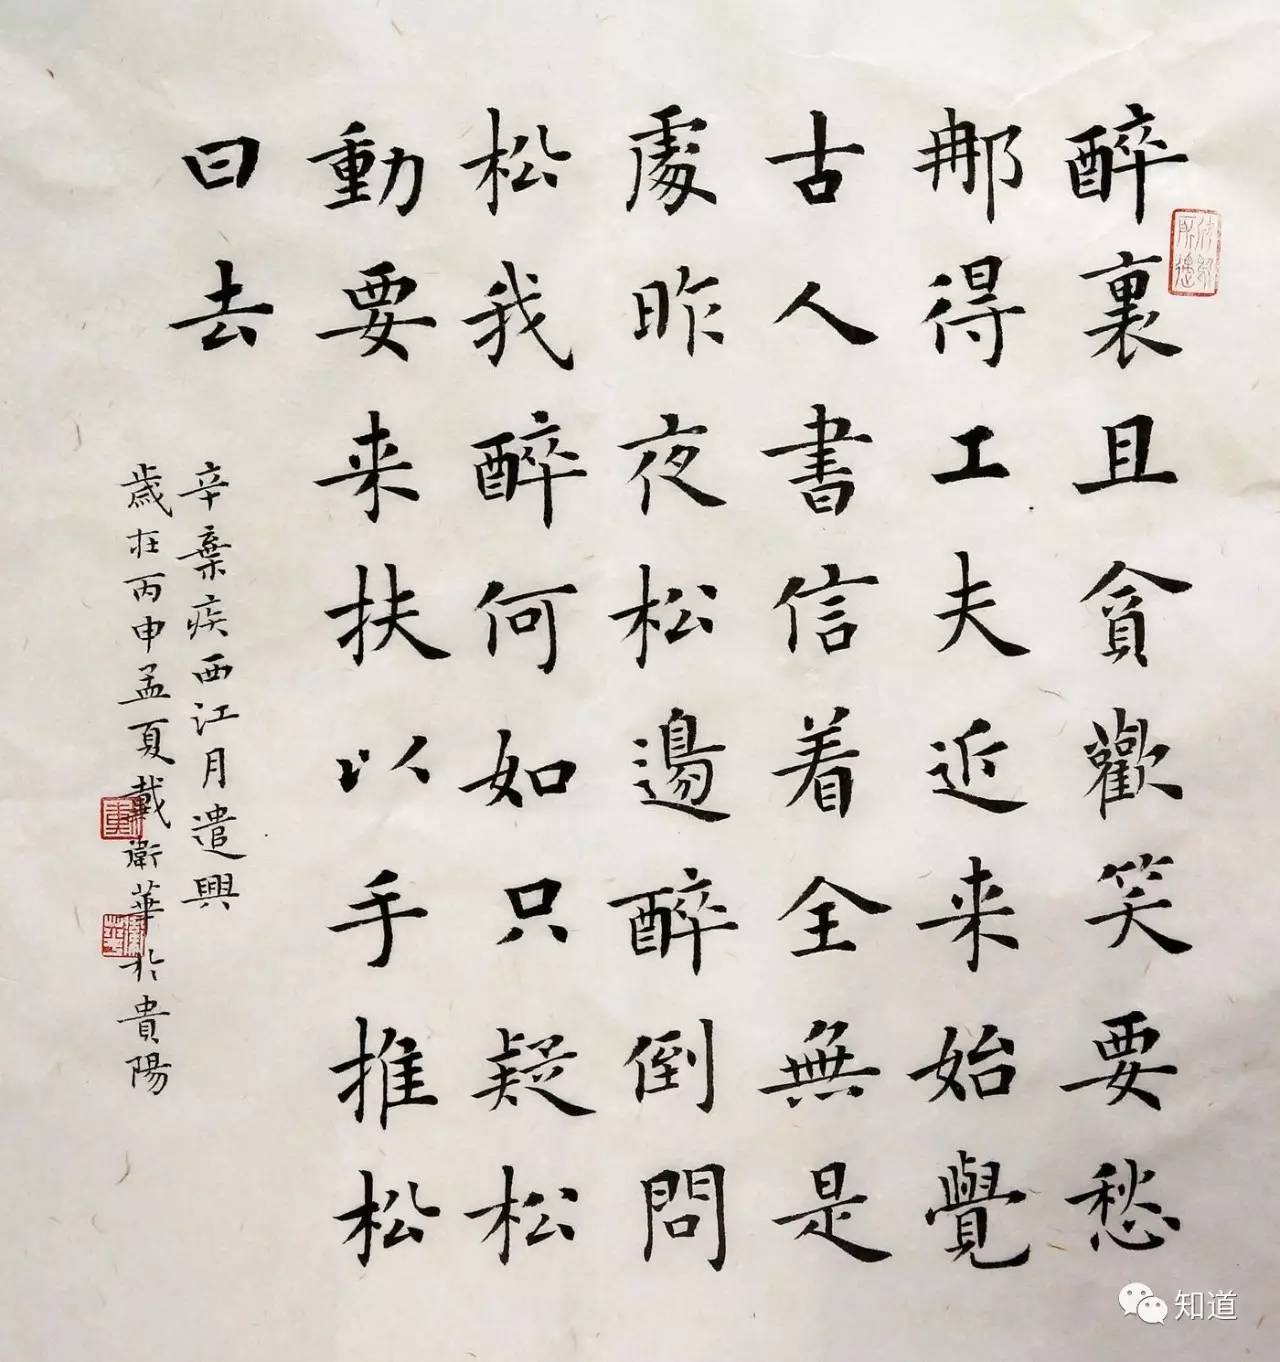 醉裏且貪歡笑要愁
那得工夫近来始覺
古人書信着全無是
處昨夜松邊醉倒問
松我醉何如只疑松
動要来扶以手推松
曰去
辛棄疾西江月遣興
歲在丙申孟夏戴衛華於貴陽
知道